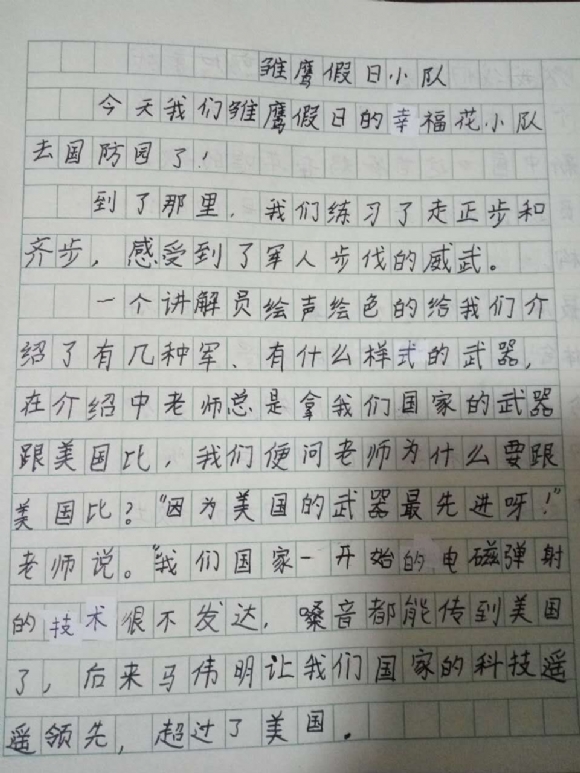 雏鹰假日小队
今天我们雏鹰假日的幸福花小队
去国防园了！
到了那里，我们练习了走正步和
齐步，感受到了军人步伐的威武。
一个讲解员绘声绘色的给我们介
绍了有几种军、有什么样式的武器，
在介绍中老师总是拿我们国家的武器
跟美国比，我们便问老师为什么要跟
美国比？“因为美国的武器最先进呀！”
老师说。“我们国家一开始的电磁弹射
的技术很不发达，嗓音都能传到美国
了，后来马伟明让我们国家的科技遥
遥领先，超过了美国．